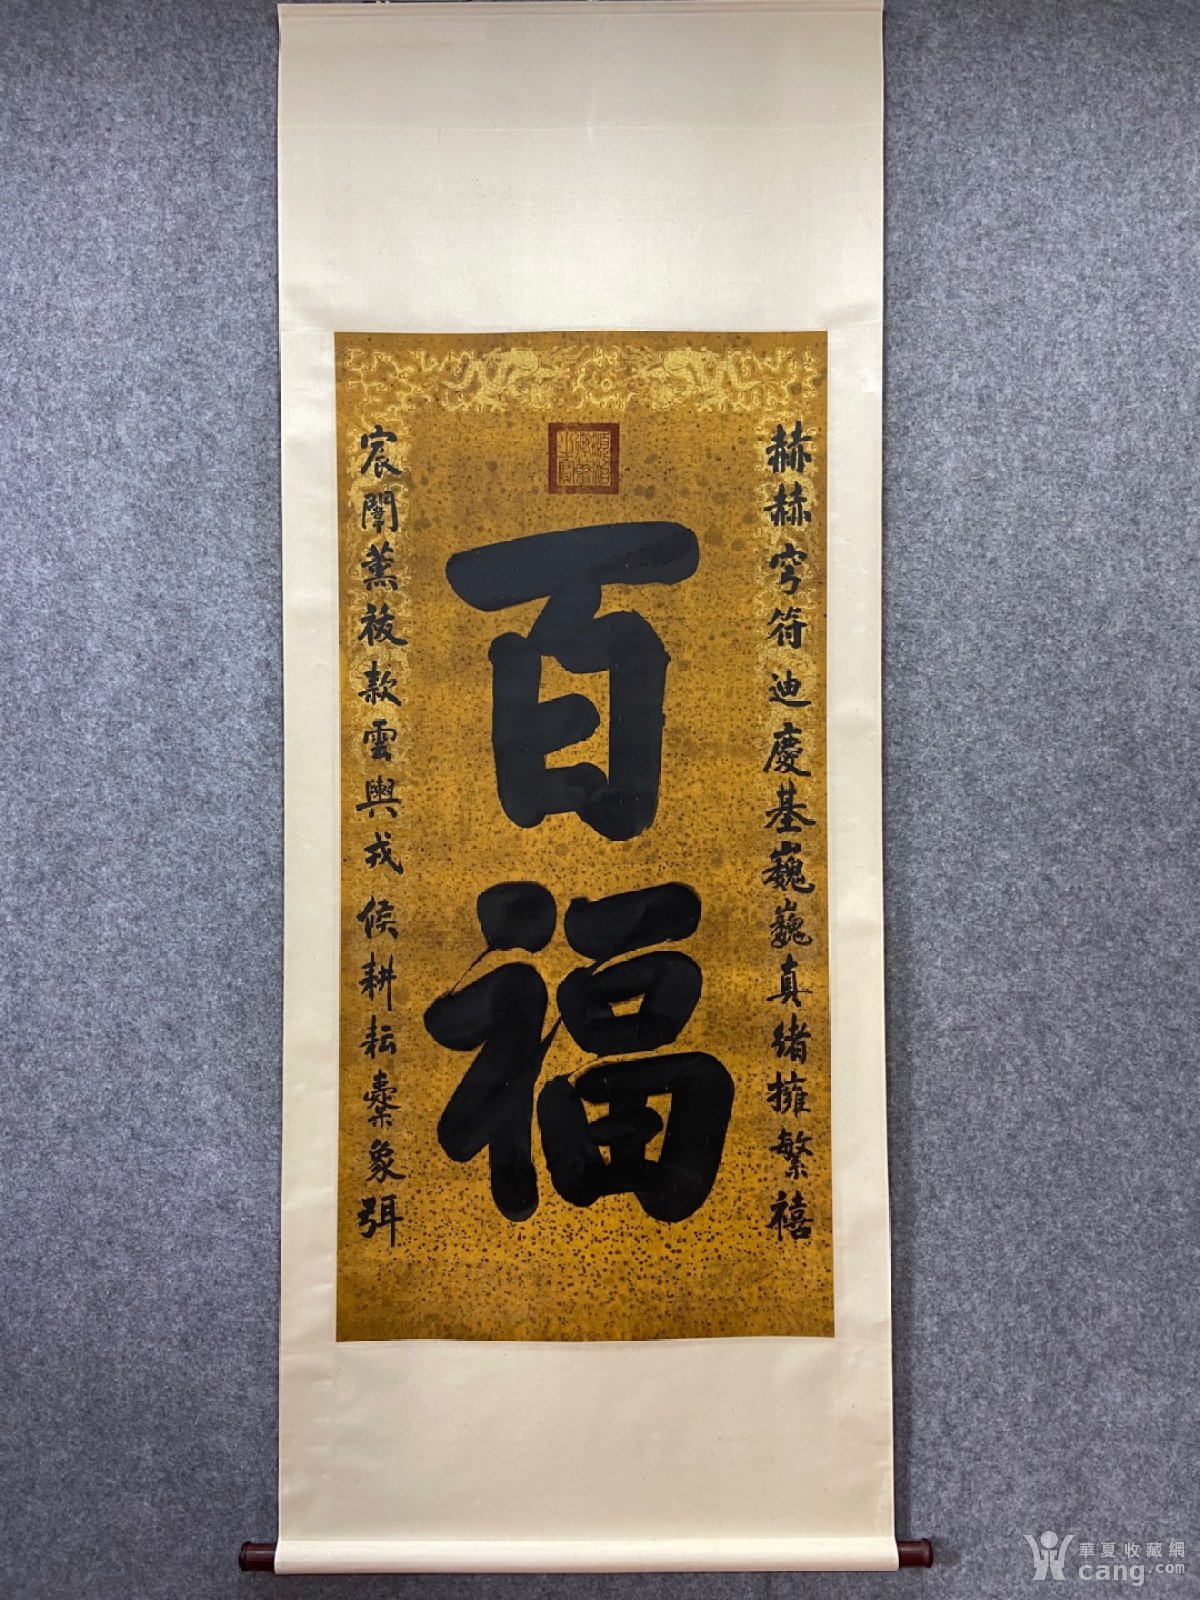 赫赫穹符迪慶基巍巍真緒擁繁禧
百福
宸闈薰祓款雲輿戎候耕耘櫜象弭
華夏收藏網
cang.com